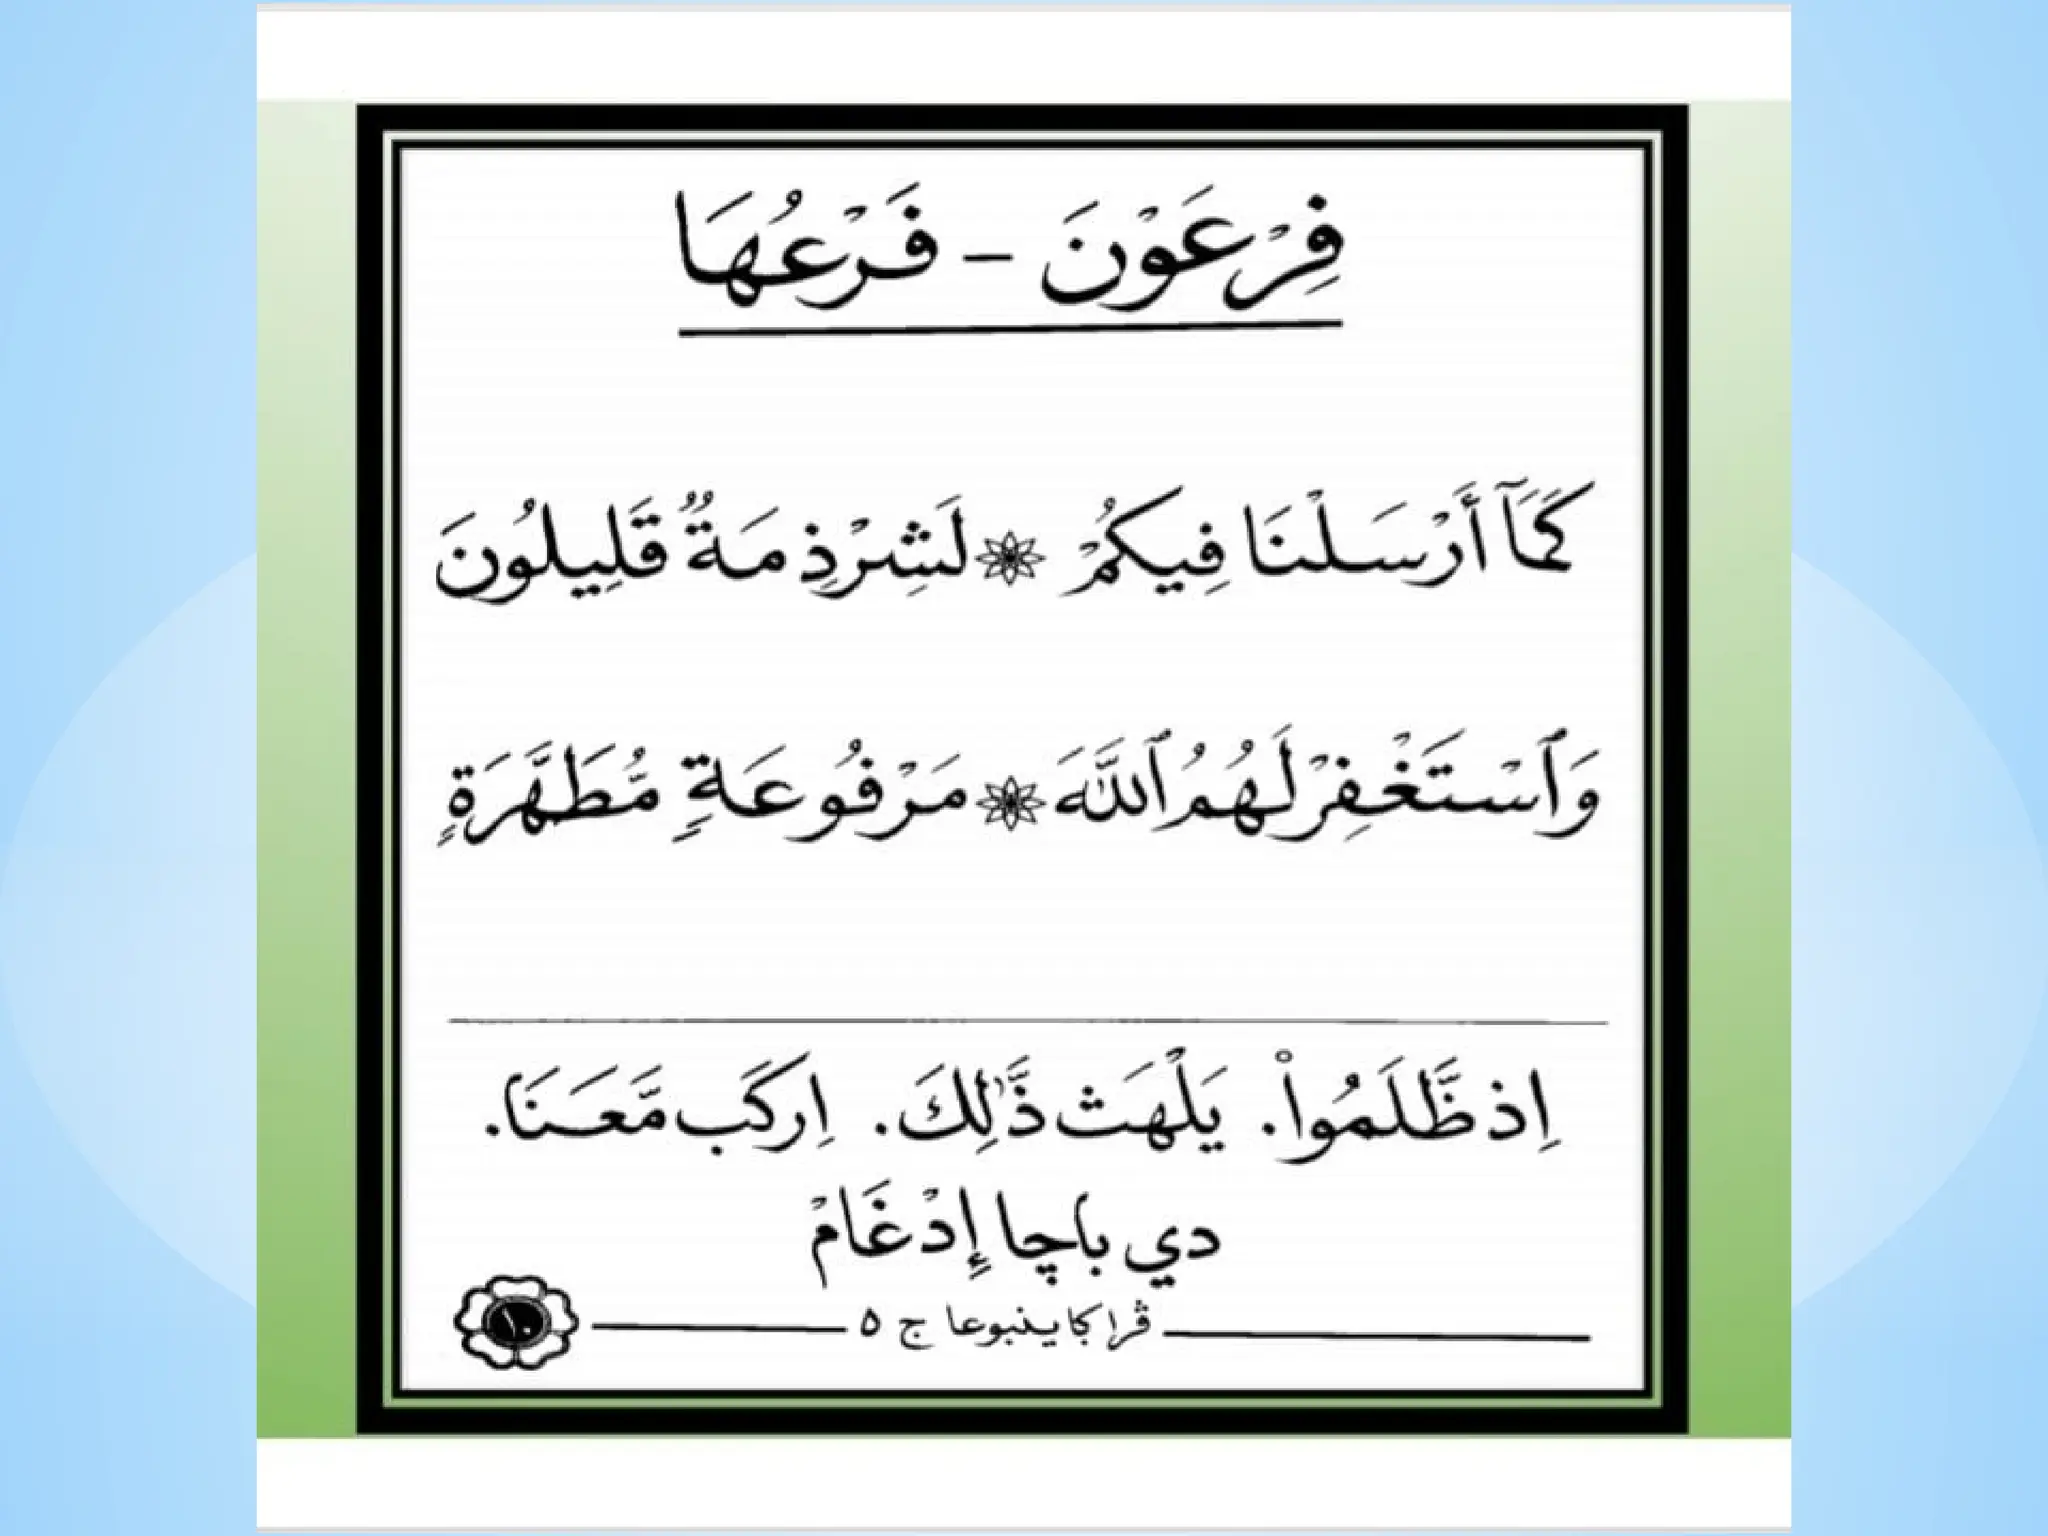 فِرْعَوْنَ - فَرْعُهَا
كَمَآ أَرْسَلْنَا فِيكُمْ ۞ لَشِرْذِمَةٌ قَلِيلُونَ
وَٱسْتَغْفِرْ لَهُمُ ٱللَّهَ ۞ مَرْفُوعَةٍ مُّطَهَّرَةٍ
اِذ ظَّلَمُوا۟. يَلْهَث ذَّٰلِكَ. اِركَب مَّعَنَا.
دي باچا إِدْغَامْ
ڤراكتاينبوعا ج ٥
١٠